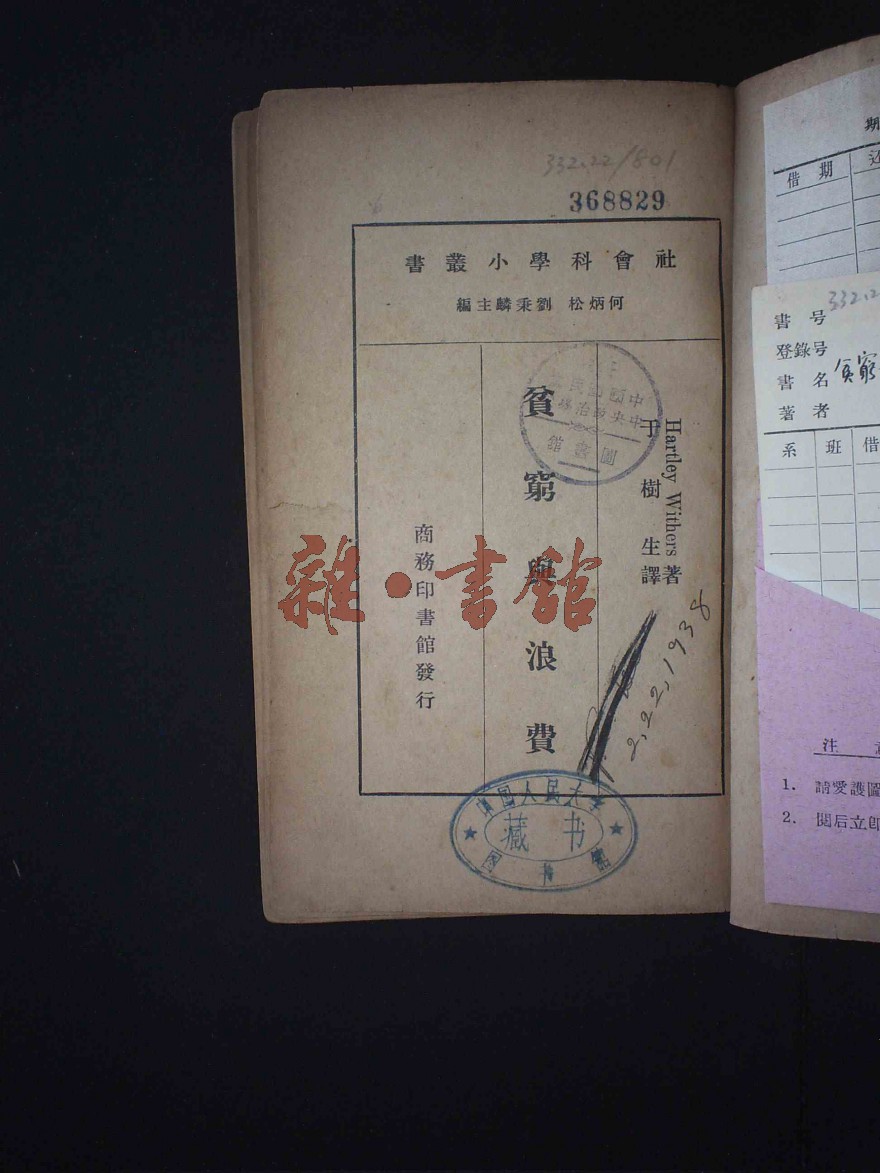 332.22/801
368829
社會科學小叢書
何炳松 劉秉麟主編
Hartley Withers 著
于樹生譯
貧窮與浪費
商務印書館發行
圖書館
2,22,1938
雜·書館
中国人民大学
藏书
图书馆
期
借期
还
332.2
書号
登錄号
書名 貧窮
著者
系 班 借
注 意
1. 請愛護圖
2. 閱后立即